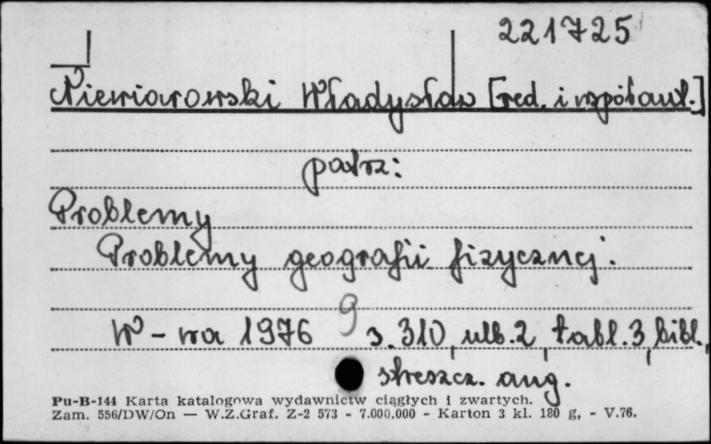 221725
Niewiarowski Władysław [red. i współaut.]
patrz:
Problemy
Problemy geografii fizycznej.
W-wa 1976 9 s. 310, ulb. 2, tabl. 3, bibl.,
streszcz. ang.
Pu-B-144 Karta katalogowa wydawnictw ciągłych i zwartych.
Zam. 556/DW/On — W.Z.Graf. Z-2 573 - 7.000.000 - Karton 3 kl. 180 g, - V.76.